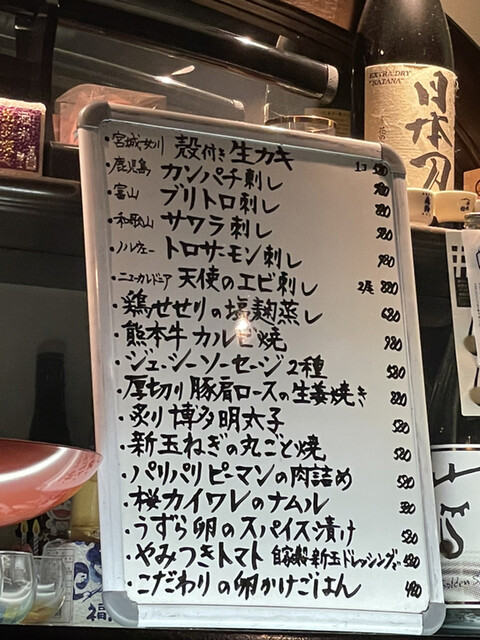 EXTRA DRY
"KATANA"
日本刀
・宮城・女川 殻付き 生カキ 1コ
・鹿児島 カンパチ刺し
・富山 ブリトロ刺し
・和歌山 サワラ刺し
・ノルウェー トロサーモン刺し
・ニューカレドニア 天使のエビ刺し 2尾 880
・鶏せせりの塩麹蒸し 680
・熊本牛カルビ焼 980
・ジューシーソーセージ2種 580
・厚切り豚肩ロースの生姜焼き 880
・炙り博多明太子 580
・新玉ねぎの丸ごと焼 580
・パリパリピーマンの肉詰め 580
・桜カイワレのナムル 380
・うずら卵のスパイス漬け 580
・やみつきトマト 自家製新玉ドレッシング
・こだわりの卵かけごはん 480
福